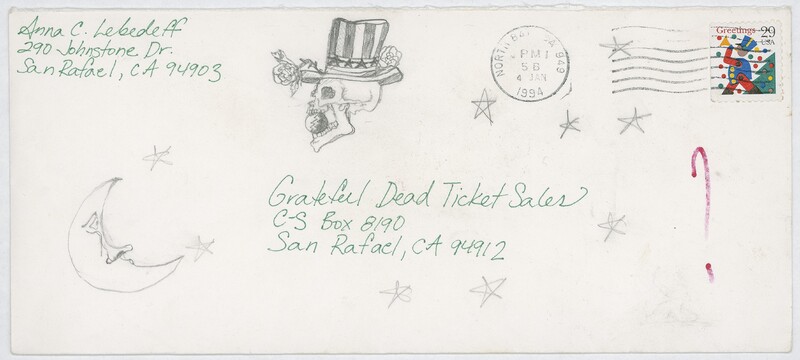 Anna C. Lebedeff
290 Johnstone Dr.
San Rafael, CA 94903
NORTH BAY CA 949
PM 1
5B
4 JAN
1994
Greetings 29
USA
Grateful Dead Ticket Sales
C-S Box 8190
San Rafael, CA 94912